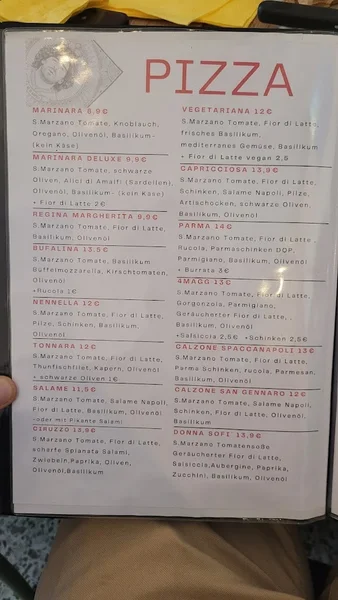 PIZZA
MARINARA 8,9€
S.Marzano Tomate, Knoblauch,
Oregano, Olivenöl, Basilikum-
(kein Käse)
MARINARA DELUXE 9,9€
S.Marzano Tomate, schwarze
Oliven, Alici di Amalfi (Sardellen),
Olivenöl, Basilikum- (kein Käse)
+ Fior di Latte 2€
REGINA MARGHERITA 9,9€
S.Marzano Tomate, Fior di Latte,
Basilikum, Olivenöl
BUFALINA 13,5€
S.Marzano Tomate, Basilikum
Büffelmozzarella, Kirschtomaten,
Olivenöl
+Rucola 1€
NENNELLA 12€
S.Marzano Tomate, Fior di Latte,
Pilze, Schinken, Basilikum
Olivenöl
TONNARA 12€
S.Marzano Tomate, Fior di Latte,
Thunfischfilet, Kapern, Olivenöl
+ schwarze Oliven 1€
SALAME 11,5€
S.Marzano Tomate, Salame Napoli,
Fior di Latte, Basilikum, Olivenöl
-oder mit Pikante Salami
CIRUZZO 13,9€
S.Marzano Tomate, Fior di Latte,
scharfe Spianata Salami,
Zwiebeln,Paprika, Oliven,
Olivenöl,Basilikum
VEGETARIANA 12€
S.Marzano Tomate, Fior di Latte,
frisches Basilikum,
mediterranes Gemüse, Basilikum
+ Fior di Latte vegan 2,5
CAPRICCIOSA 13,9€
S.Marzano Tomate, Fior di Latte,
Schinken, Salame Napoli, Pilze,
Artischocken, schwarze Oliven,
Basilikum, Olivenöl
PARMA 14€
S.Marzano Tomate, Fior di Latte,
Rucola, Parmaschinken DOP,
Parmigiano, Basilikum, Olivenöl
+ Burrata 3€
4MAGG 13€
S.Marzano Tomate, Fior di Latte,
Gorgonzola, Parmigiano,
Geräucherter Fior di Latte,
Basilikum, Olivenöl
+Salsiccia 2,5€ +Schinken 2,5€
CALZONE SPACCANAPOLI 13€
S.Marzano Tomate, Fior di Latte,
Parma Schinken, rucola, Parmesan,
Basilikum, Olivenöl
CALZONE SAN GENNARO 12€
S.Marzano Tomate, Salame Napoli,
Schinken, Fior di Latte, Olivenöl,
Basilikum
DONNA SOFI' 13,9€
S.Marzano Tomatensoße
Geräucherter Fior di Latte,
Salsiccia,Aubergine, Paprika,
Zucchini, Basilikum, Olivenöl